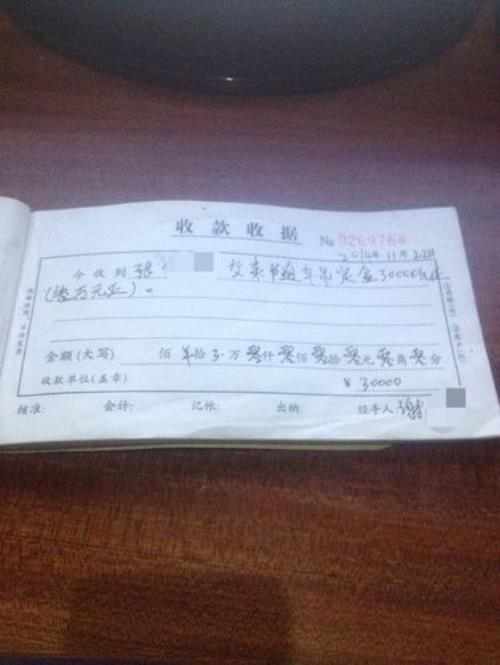 收款收据 № 0269764
2014年11月22日
今收到 张 交来 车 定金30000元
(叁万元正)。
金额(大写) 佰 拾 3 万 零仟 零佰 零拾 零元 零角 零分
收款单位(盖章) ¥ 30000
核准: 会计: 记帐: 出纳: 经手人